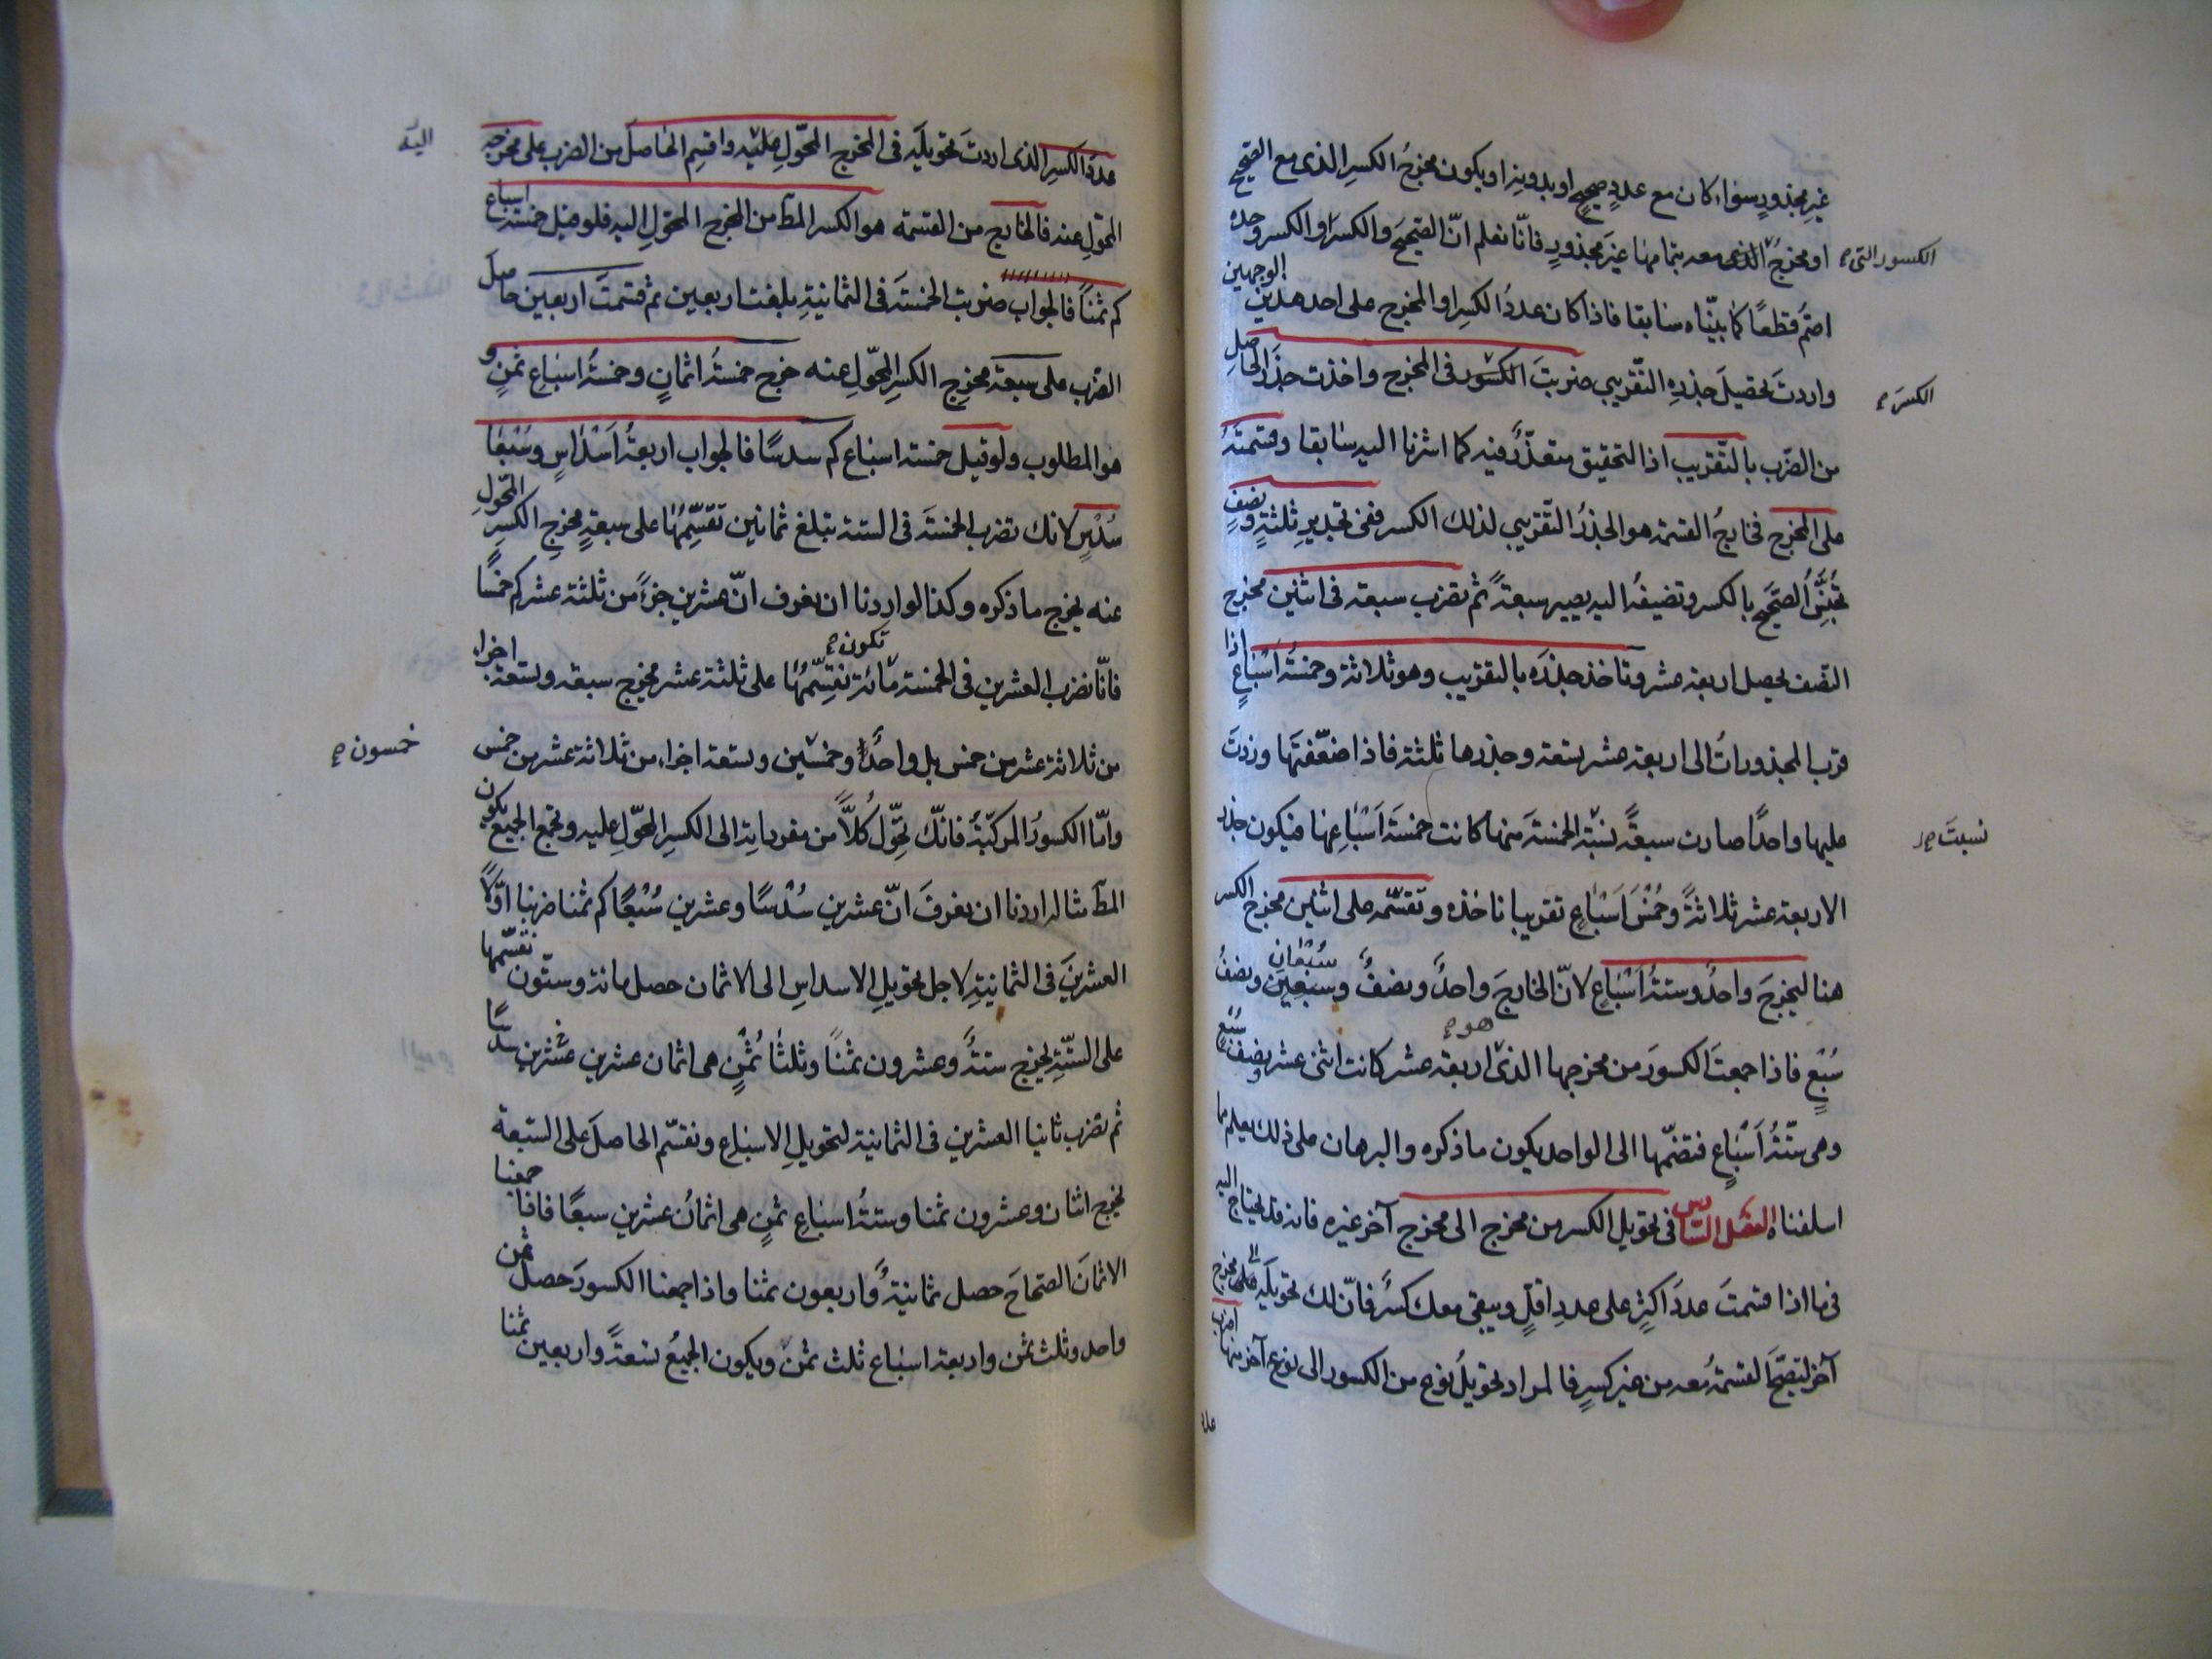 غير مجذور سواء كان مع عدد صحيح او بدونه او يكون مخرج الكسر الذى مع الصحيح
او مخرج الذى معه بتمامها غير مجذور فانا نعلم ان الصحيح والكسر او الكسر وحده
الكسور التى صح
اصم قطعا كما بيناه سابقا فاذا كان عدد الكسر او المخرج على احد هذين الوجهين
واردت تحصيل جذره التقريبى ضربت الكسور فى المخرج واخذت جذر الحاصل
الكسر صح
من الضرب بالتقريب اذا التحقيق متعذر فيه كما اشرنا اليه سابقا وقسمته
على المخرج فخارج القسمة هو الجذر التقريبى لذلك الكسر ففى تجذير ثلثة ونصف
تجنس الصحيح بالكسر وتضيفه اليه يصير سبعة ثم تضرب سبعة فى اثنين مخرج
النصف يحصل اربعة عشر وتاخذ جذره بالتقريب وهو ثلاثة وخمسة اسباع اذا
قرب المجذورات الى اربعة عشر تسعة وجذرها ثلثة فاذا ضعفتها وزدت
عليها واحدا صارت سبعة نسبة الخمسة منها كانت خمسة اسباعها فيكون جذر
نسبت صح
الاربعة عشر ثلاثة وخمس اسباع تقريبا ناخذه وتقسمه على اثنين مخرج الكسر
هنا ليخرج واحد وستة اسباع لان الخارج واحد ونصف وسبعين ونصف
سبعان
سبع فاذا جمعت الكسور من مخرجها الذى اربعة عشر كانت اثنى عشر ونصف سبع
هو صح
وهى ستة اسباع فتضمها الى الواحد يكون ما ذكره والبرهان على ذلك يعلم مما
اسلفناه الفصل السادس فى تحويل الكسر من مخرج الى مخرج آخر غيره فانه قد يحتاج اليه
فيها اذا قسمت عدد اكثر على عدد اقل ويبقى معك كسر فان لك تحويله على مخرج
الى
آخر لتصح القسمة معه من غير كسر فالمراد تحويل نوع من الكسور الى نوع آخر منها اضرب
عدد
عدد الكسر الذى اردت تحويله فى المخرج المحول عليه واقسم الحاصل من الضرب على مخرجه
اليه
المحول عنه فالخارج من القسمة هو الكسر المط من المخرج المحول اليه فلو قيل خمسة اسباع
كم ثمنا فالجواب ضربت الخمسة فى الثمانية بلغت اربعين ثم قسمت اربعين حاصل
الضرب على سبعة مخرج الكسر المحول عنه خرج خمسة اثمان وخمسة اسباع ثمن و
هو المطلوب ولو قيل خمسة اسباع كم سدسا فالجواب اربعة اسداس وسبعا
سدس لانك تضرب الخمسة فى الستة تبلغ ثمانين تقسمها على سبعة مخرج الكسر المحول
عنه يخرج ما ذكره وكذا لو اردنا ان نعرف ان عشرين جزءا من ثلثة عشر كم خمسا
فانا نضرب العشرين فى الخمسة مائة نقسمها على ثلثة عشر مخرج سبعة وتسعة اجزاء
تكون صح
من ثلاثة عشر من خمس بل واحدا وخمسين وتسعة اجزاء من ثلاثة عشر من خمس
خمسون صح
واما الكسور المركبة فانك تحول كلا من مفرداته الى الكسر المحول عليه وتجمع الجميع يكون
المط مثاله اردنا ان نعرف ان عشرين سدسا وعشرين سبعا كم ثمنا ضربنا اولا
العشرين فى الثمانية لاجل تحويل الاسداس الى الاثمان حصل مائة وستون نقسمها
على الستة ليخرج ستة وعشرون ثمنا وثلثا ثمن هى اثمان عشرين عشرين سدسا
ثم نضرب ثانيا العشرين فى الثمانية لتحويل الاسباع ونقسم الحاصل على السبعة
ليخرج اثنان وعشرون ثمنا وستة اسباع ثمن هى اثمان عشرين سبعا فاذا جمعنا
الاثمان الصحاح حصل ثمانية واربعون ثمنا واذا جمعنا الكسور حصل ثمن
واحد وثلث ثمن واربعة اسباع ثلث ثمن ويكون الجميع تسعة واربعين ثمنا